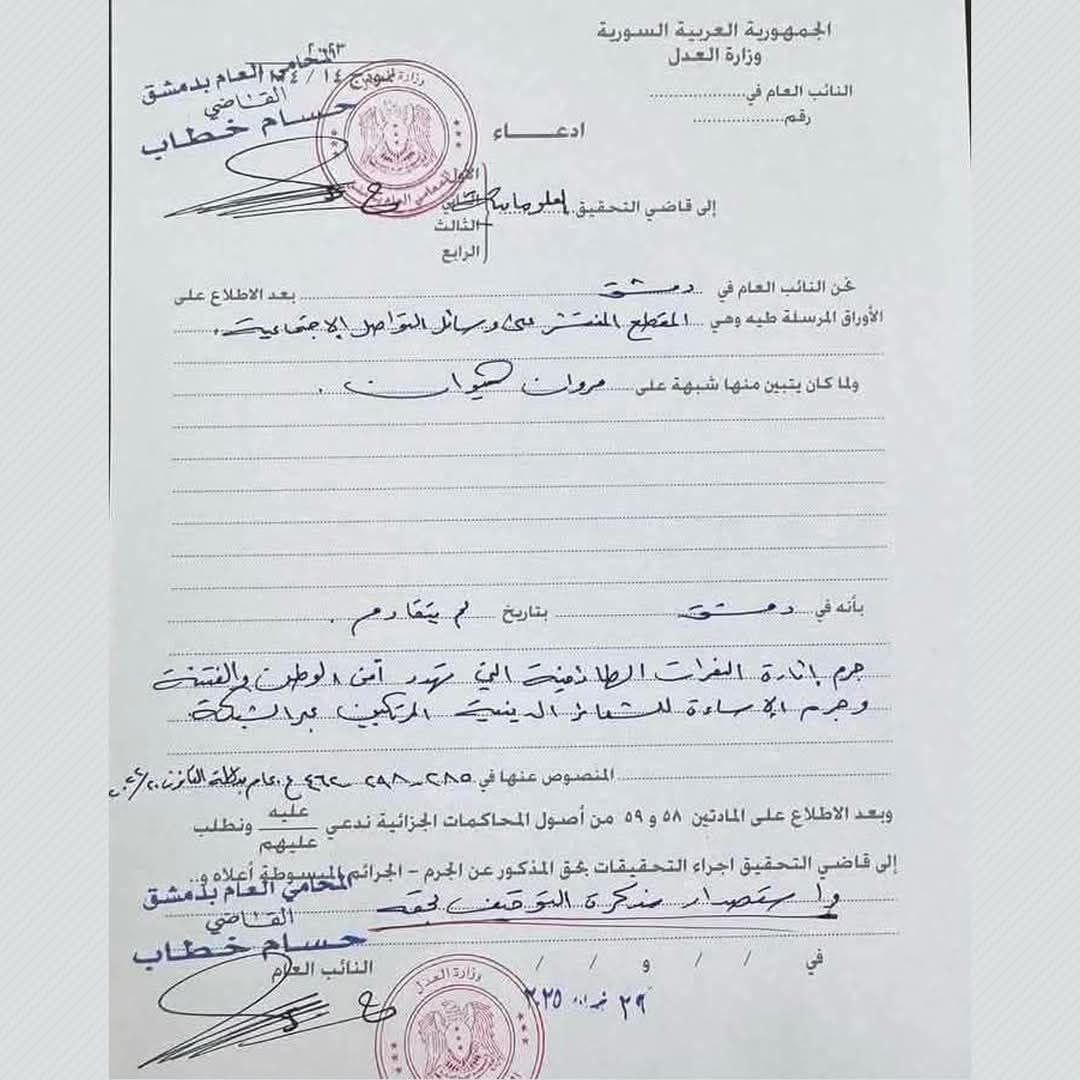 الجمهورية العربية السورية
وزارة العدل
النائب العام في
رقم
المحامي العام بدمشق
القاضي
حسام خطاب
وزارة
ادعـــــاء
إلى قاضي التحقيق معلوماتية
الأول
الثاني
الثالث
الرابع
نحن النائب العام في دمشق بعد الاطلاع على
الأوراق المرسلة طيه وهي المقطع المنتشر على وسائل التواصل الإجتماعية .
ولما كان يتبين منها شبهة على مروان كيوان .
بأنه في دمشق بتاريخ لم يتقادم .
جرم إثارة النعرات الطائفية التي تهدد أمن الوطن والفتنة
وجرم الإساءة للشعائر الدينية المرتكبين عبر الشبكة
المنصوص عنها في ٢٨٥ - ٢٩٨ - ٤٦٢ ع . عام بدلالة القانون ٢٠
وبعد الاطلاع على المادتين ٥٨ و ٥٩ من أصول المحاكمات الجزائية ندعي عليه ونطلب
عليهم
إلى قاضي التحقيق اجراء التحقيقات بحق المذكور عن الجرم – الجرائم المبسوطة أعلاه و..
واستصدار مذكرة التوقيف بحقه
المحامي العام بدمشق
القاضي
حسام خطاب
النائب العام
في / / و / /
٢٩ ٢٠٢٥
وزارة العدل